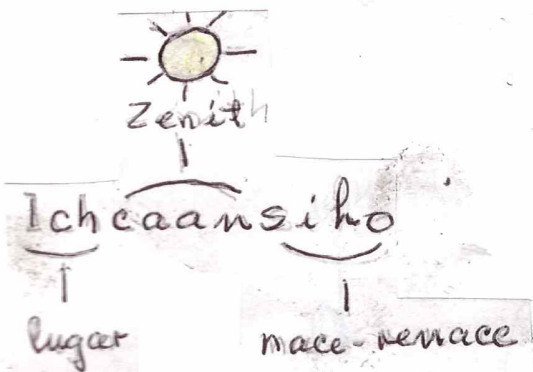 Zenith
Ichcaansiho
lugar
nace-renace